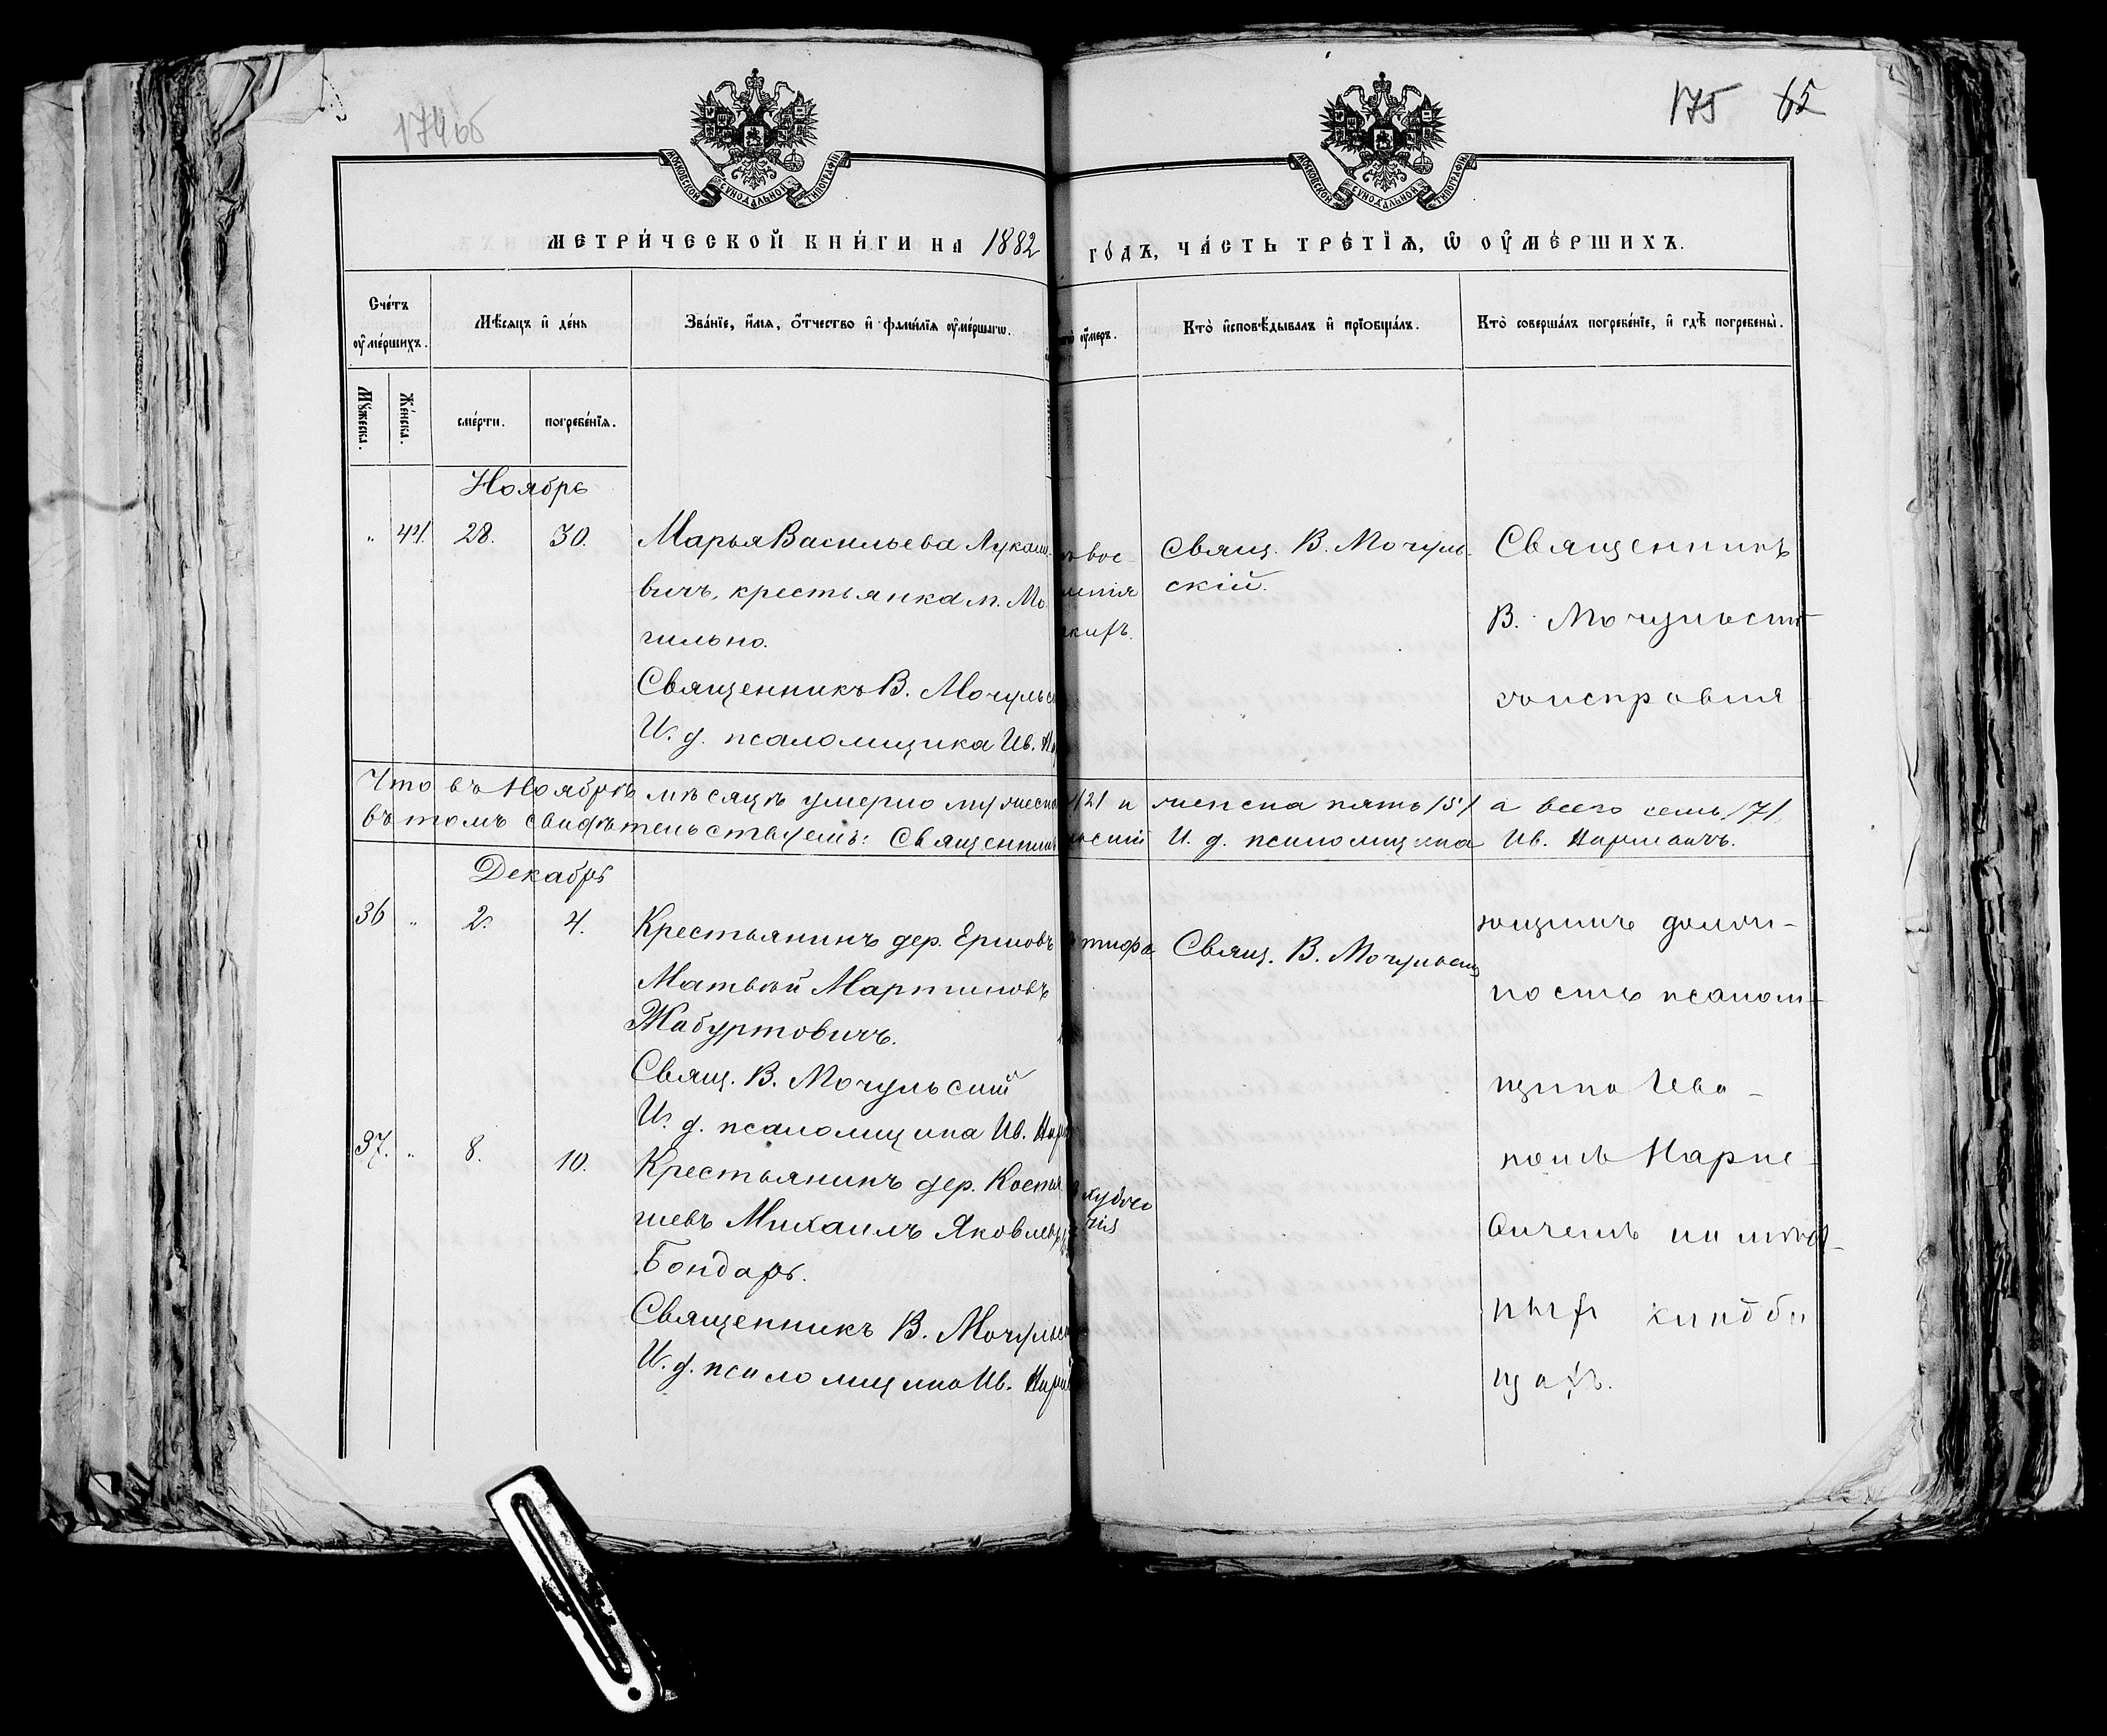 174об
175 65
МОСКОВСКОЙ СѴНОДАЛЬНОЙ ТИПОГРАФІИ
МОСКОВСКОЙ СѴНОДАЛЬНОЙ ТИПОГРАФІИ
МЕТРИ́ЧЕСКОЙ КНИ́ГИ НА 1882
ГО́ДЪ, ЧА́СТЬ ТРЕ́ТІѦ, Ѿ ОУМЕ́РШИХЪ.
Сче́тъ оуме́ршихъ.
Мѣ́сяцъ и де́нь
Зва́нїе, и́мѧ, о́тчество и фами́лїѧ оуме́ршагѡ.
оу́меръ.
Кто̀ и҆сповѣ́дывалъ и прїобща́лъ.
Кто̀ соверша́лъ погребе́нїе, и гдѣ̀ погребены̀.
Мꙋ́жеска.
Же́нска.
сме́рти.
погребе́нїѧ.
Ноябрь
„ 44. 28. 30. Марья Васильева Лукаш-
вичъ, крестьянка м. Мо-
гильно.
Священникъ В. Мочульс
И. д. псаломщика Ив. На
Свящ. В. Мочуль-
скій.
Священникъ
В. Мочульскій
Что въ Ноябрѣ мѣсяцѣ умерло мужеска
/2/ и женска пять /5/ а всего семь /7/
въ томъ свидѣтельствуемъ: Священник
И. д. псаломщика Ив. Наркевичъ.
Декабрь
36 „ 2. 4. Крестьянинъ дер. Ершовъ
Матвѣй Мартиновъ
Жабуртовичъ.
Свящ. В. Мочульскій
И. д. псаломщика Ив. Нарк
тифа
Свящ. В. Мочульскій
ющимъ должн-
ность псалом-
щика Ива-
номъ Нарке-
вичемъ на
кладби
щахъ.
37. „ 8. 10. Крестьянинъ дер. Костя
шевъ Михаилъ Яковлевъ
Бондарь.
Священникъ В. Мочульск
И. д. псаломщика Ив. Нарк